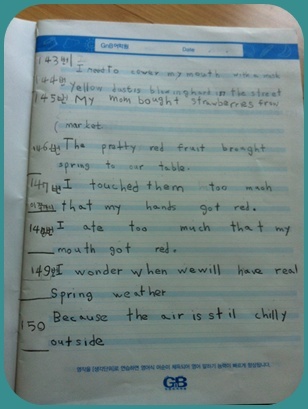 Date
143번 I need to cover my mouth with a mask
144번 Yellow dust is blowing hard in the street
145번 My mom bought strawberries from
market.
146번 The pretty red fruit brought
spring to our table.
147번 I touched them too much
that my hands got red.
148번 I ate too much that my
mouth got red.
149번 I wonder when we will have real
Spring weather
150 Because the air is stil chilly
outside
GB